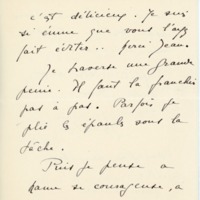 c'est délicieux. Je suis
si émue que vous l'ayez
fait éditer.. Merci Jean.
Je traverse une grande
peine. Il faut la franchir
pas à pas. Parfois je
plie les épaules sous la
tâche.
Puis je pense à
dame se courageuse, a